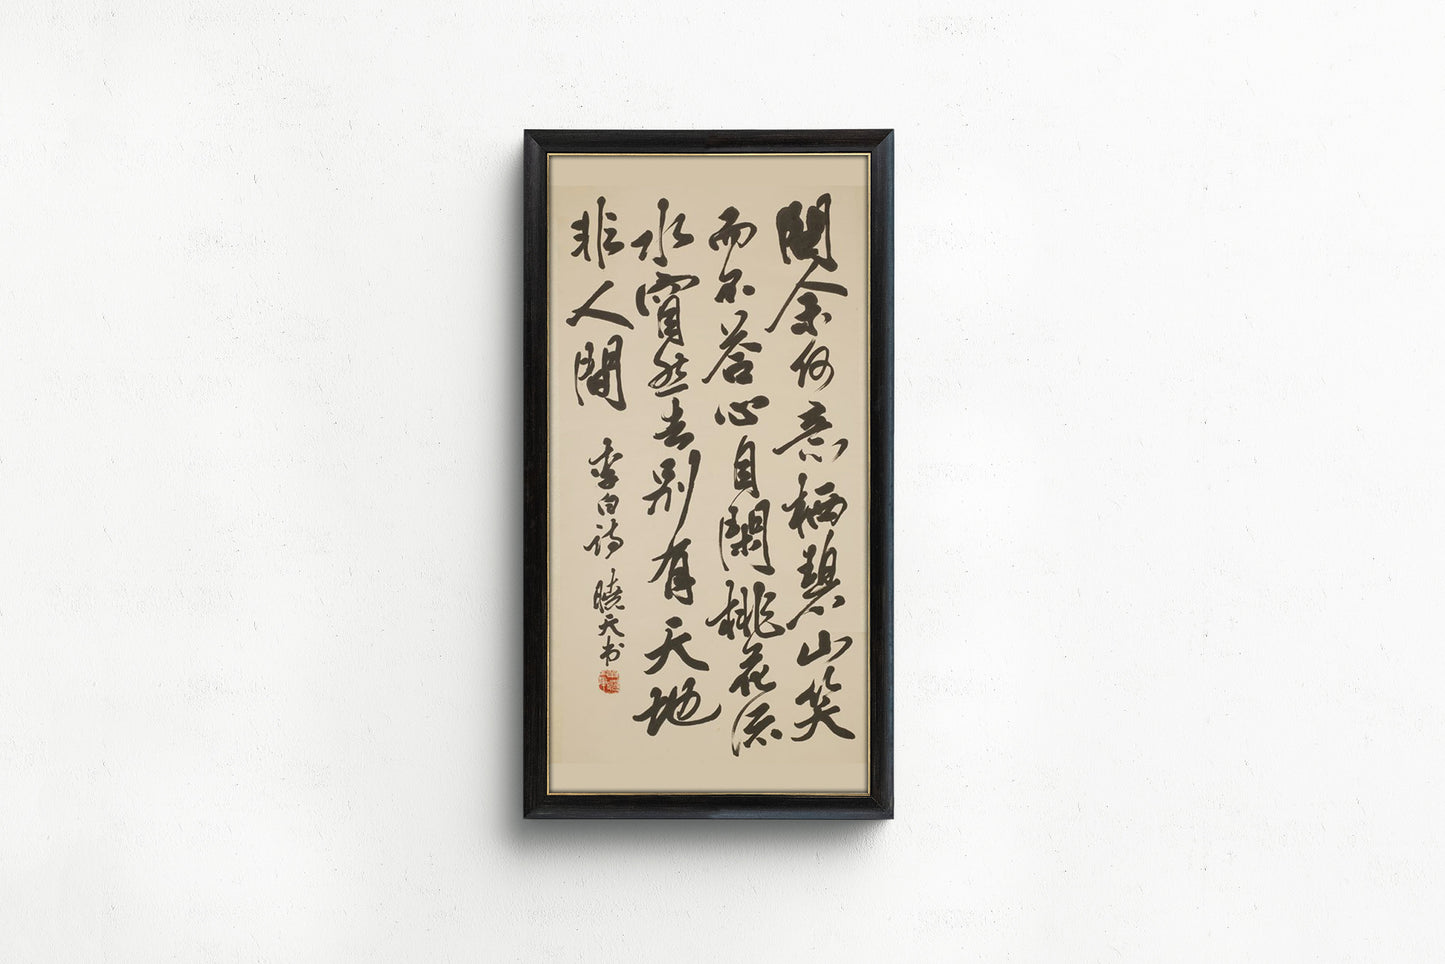 問余何意栖碧山笑
而不答心自閑桃花流
水窅然去別有天地
非人間 李白诗 曉天书